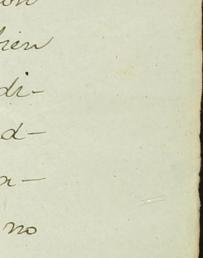 on
bien
di-
d-
a-
no